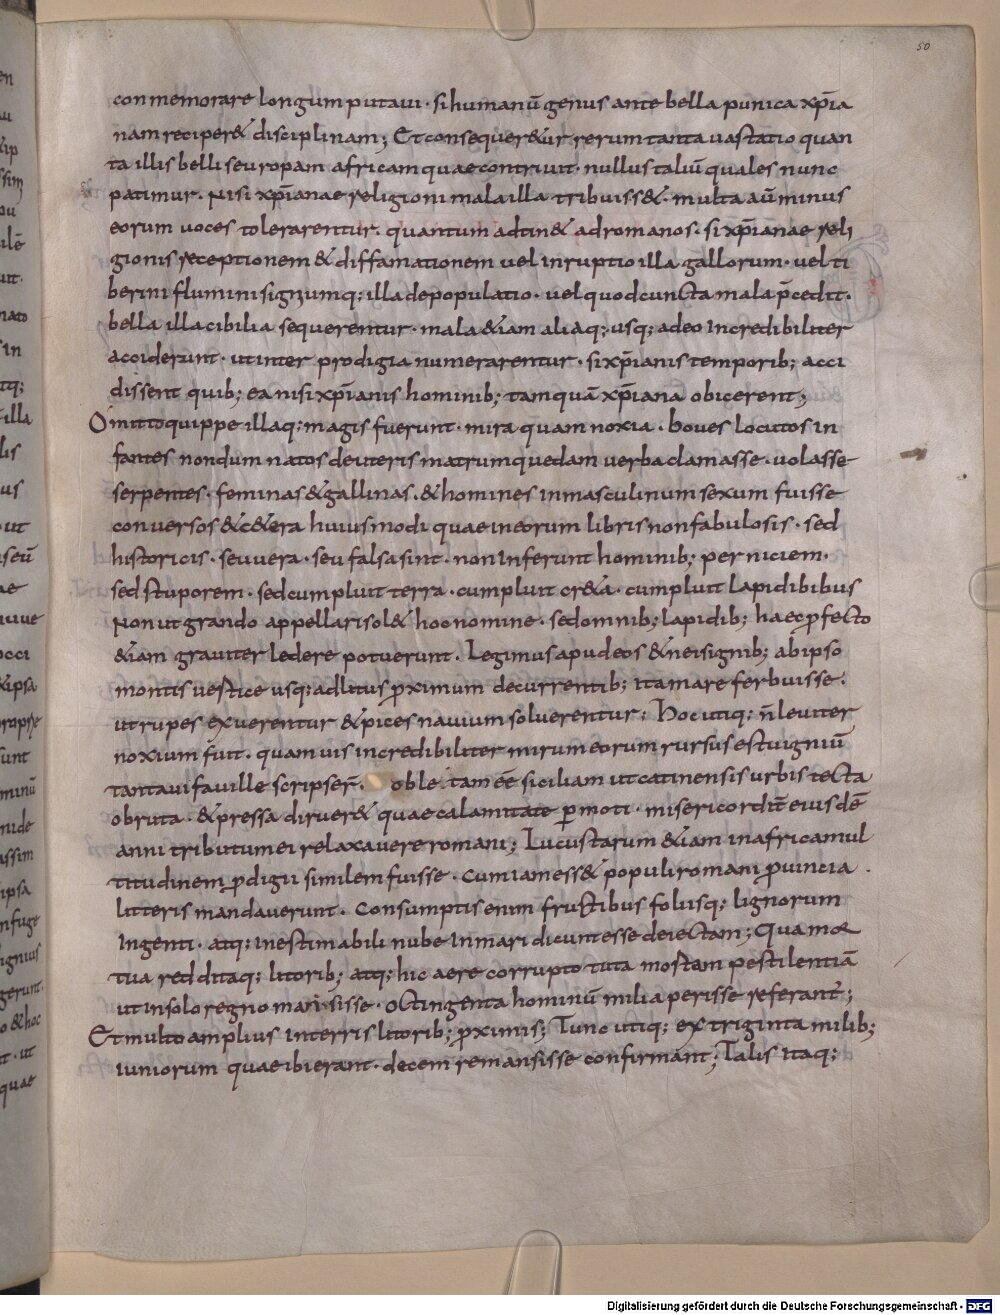 50
conmemorare longum putaui · si humanū genus ante bella punica xp̄ia
nam reciper& disciplinam; Et consequer&ur rerum tanta uastatio quan
ta illis belliseuropam africamquaecontriuit · nullus taliū quales nunc
patimur · Nisi xp̄ianae religioni malailla tribuiss& · multa aūminus
eorum uoces tolerarentur · quantum adtin& adromanos · si xp̄ianae reli
gionis receptionem & diffamationem uel inruptio illa gallorum · uel ti
berini fluminisignumq; illa depopulatio · uel quodcuncta mala p̄cedit ·
bella illacibilia sequerentur · mala &iam aliaq; usq; adeo incredibiliter
acciderunt · utinter prodigia numerarentur · sixp̄ianis temporib; acci
dissent quib; ea nisi xp̄ianis hominib; tamquā xp̄iana obicerent;
Omittoquippe illaq; magis fuerunt · mira quam noxia · boues locutos in
fantes nondum natos deuteris matrumquedam uerba clamasse · uolasse
serpentes · feminas & gallinas · & homines inmasculinum sexum fuisse
conuersos & c&era huiusmodi quae ineorum libris nonfabulosis · sed
historicis · seuuera · seu falsa sint · non inferunt hominib; perniciem ·
sed stuporem · sedcumpluit terra · cumpluit cr&a · cumpluit lapidibibus
Nonut grando appellarisol& hocnomine · sedomnib; lapidib; haec ꝓfecto
&iam grauiter ledere potuerunt · Legimusapudeos &neisignib; abipso
montisuestice usq; adlitus ꝓximum decurrentib; itamare ferbuisse ·
utrupes exuerentur & pices nauium soluerentur; Hoc utiq; n̄ leuiter
noxium fuit · quamuis incredibiliter mirum eorum rursus estuigniū
tantaui fauille scripser̄ · oble tam ēē siciliam utcatinensisurbis tecta
obruta · & pressa diruer& quaecalamitate ꝑmoti · misericordit̄ eiusdē
anni tributumei relaxauere romani; Lucustarum &iam inafricamul
titudinem ꝓdigii similem fuisse · cumiamess& populiromani ꝓuincia ·
litteris mandauerunt · Consumptisenim fructibus foliisq; lignorum
Ingenti · atq; inestimabili nube Inmari dicuntesse deiectam; Quamor
tua redditaq; litorib; atq; hic aere corrupto tuta mostam pestilentiā
utinsolo regno mari sisse · octingenta hominū milia perisse referant;
Etmultoamplius interris litorib; ꝓximis; Tunc utiq; extriginta milib;
iuniorum quae ibierant · decem remansisse confirmant; Talis itaq;
Digitalisierung gefördert durch die Deutsche Forschungsgemeinschaft - DFG